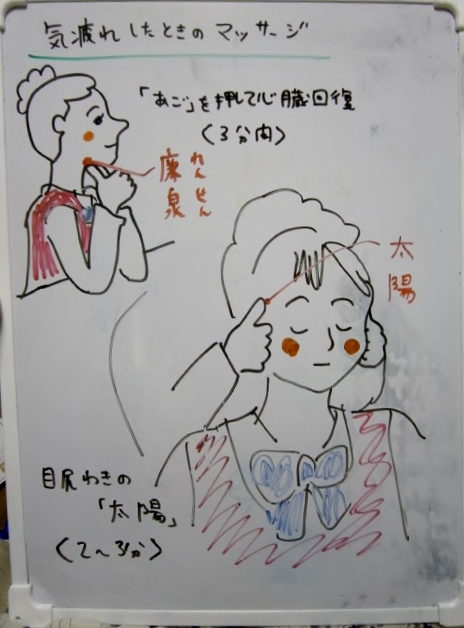 気疲れしたときのマッサージ
「あご」を押して心臓回復
(3分内)
廉泉
れんせん
太陽
目尻わきの
「太陽」
(2〜3分)